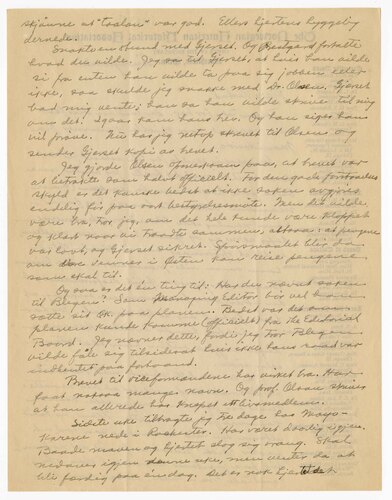 skjønne at "Toalon" var god. Ellers hjertens hyggelig
dernede.
Snakte en stund med Gjerset. Og Bestgaard fortalte
hvad du vilde. Jeg sa til Gjerset, at hvis han vilde
si fra enten han vilde ta paa sig jobben eller
ikke, saa skulde jeg snakke med Dr. Olsen. Gjerset
bad mig vente; han sa han vilde skrive til mig
om det. Igaar kom hans brev. Og han siger han
vil prøve. Nu har jeg netop skrevet til Olsen og
sender Gjerset kopi av brevet.
Jeg gjorde Olsen opmerksom paa, at brevet var
at betragte som halvt officielt. For den gode forstaaelses
skyld er det kanske bedst at ikke saken avgjøres
endelig før paa vort bestyrelsesmøte. Men det vilde
være bra, tror jeg, om det hele kunde være klappet
og klart naar vi traadte sammen, altsaa: at pengene
var lovt og Gjerset sikret. Spørsmaalet blir da
om venner i Østen kan reise pengene
som skal til.
Og saa er det en ting til: Har du nævnt saken
til Blegen? Som Managing Editor bør vel han
sætte sit OK paa planen. Bedst var det om
planen kunde komme (officielt) fra the Editorial
Board. Jeg nævner dette, fordi jeg tror Blegen
vilde føle sig tilsidesat hvis ikke hans raad var
indhentet paa forhaand.
Brevet til videformændene har virket bra. Har
faat mange navn. Og prof. Olsen skriver
at han allerede har knepet et livsmedlem.
Sidste uke tilbragte jeg tre dage hos Mayo-
karene nede i Rochester. Har været daarlig igjen.
Baade maven og hjertet slog sig vrang. Skal
nedover igjen denne uke, men venter da at
bli færdig paa en dag. Det er nok hjertet det